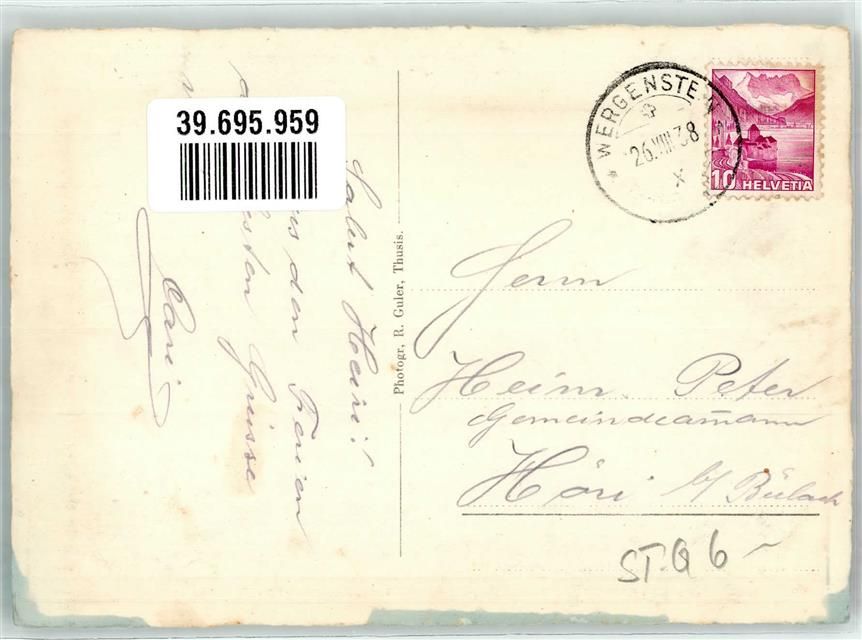 39.695.959
Salut Heiri!
aus den Ferien
besten Grüsse
Photogr. R. Guler, Thusis.
* WERGENSTEIN
26.VIII.38
X
10 HELVETIA
Herrn
Heinr. Peter
Gemeindeam̄ann
Höri b/ Bülach
ST.Q 6 -